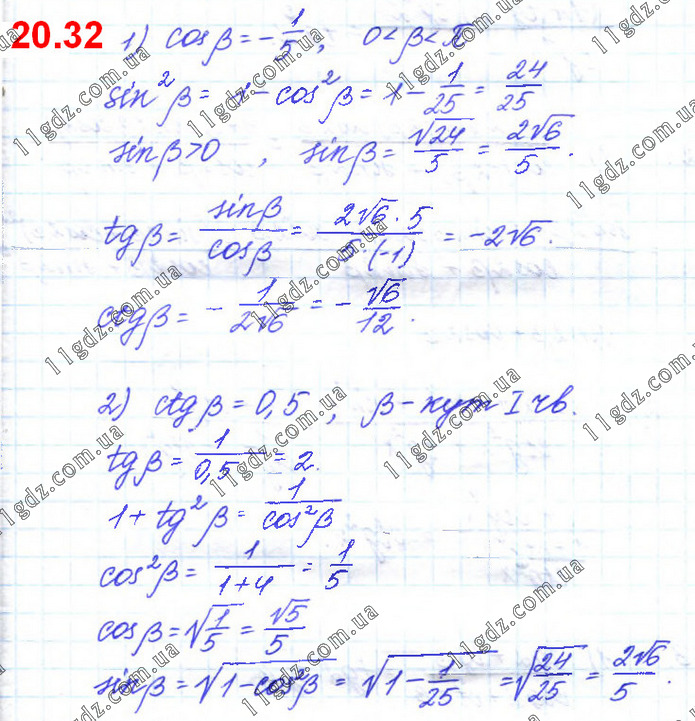 20.32 1) cos β = -1/5, 0 < β < π
sin² β = 1 - cos² β = 1 - 1/25 = 24/25
sin β > 0, sin β = √24/5 = 2√6/5.
tg β = sin β/cos β = 2√6 · 5/5 · (-1) = -2√6.
ctg β = -1/2√6 = -√6/12.
2) ctg β = 0,5, β - кут I чв.
tg β = 1/0,5 = 2.
1 + tg² β = 1/cos² β
cos² β = 1/1+4 = 1/5
cos β = √1/5 = √5/5
sin β = √1 - cos² β = √1 - 1/25 = √24/25 = 2√6/5.
11gdz.com.ua
11gdz.com.ua
11gdz.com.ua
11gdz.com.ua
11gdz.com.ua
11gdz.com.ua
11gdz.com.ua
11gdz.com.ua
11gdz.com.ua
11gdz.com.ua
11gdz.com.ua
11gdz.com.ua